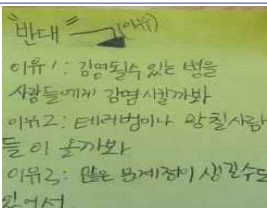 "반대" (이유)
이유1: 감염될수 있는 병을
사람들에게 감염시킬까봐
이유2: 테러범이나 망칠사람
들이 올까봐
이유3: 많은 문제점이 생길수도
있어서